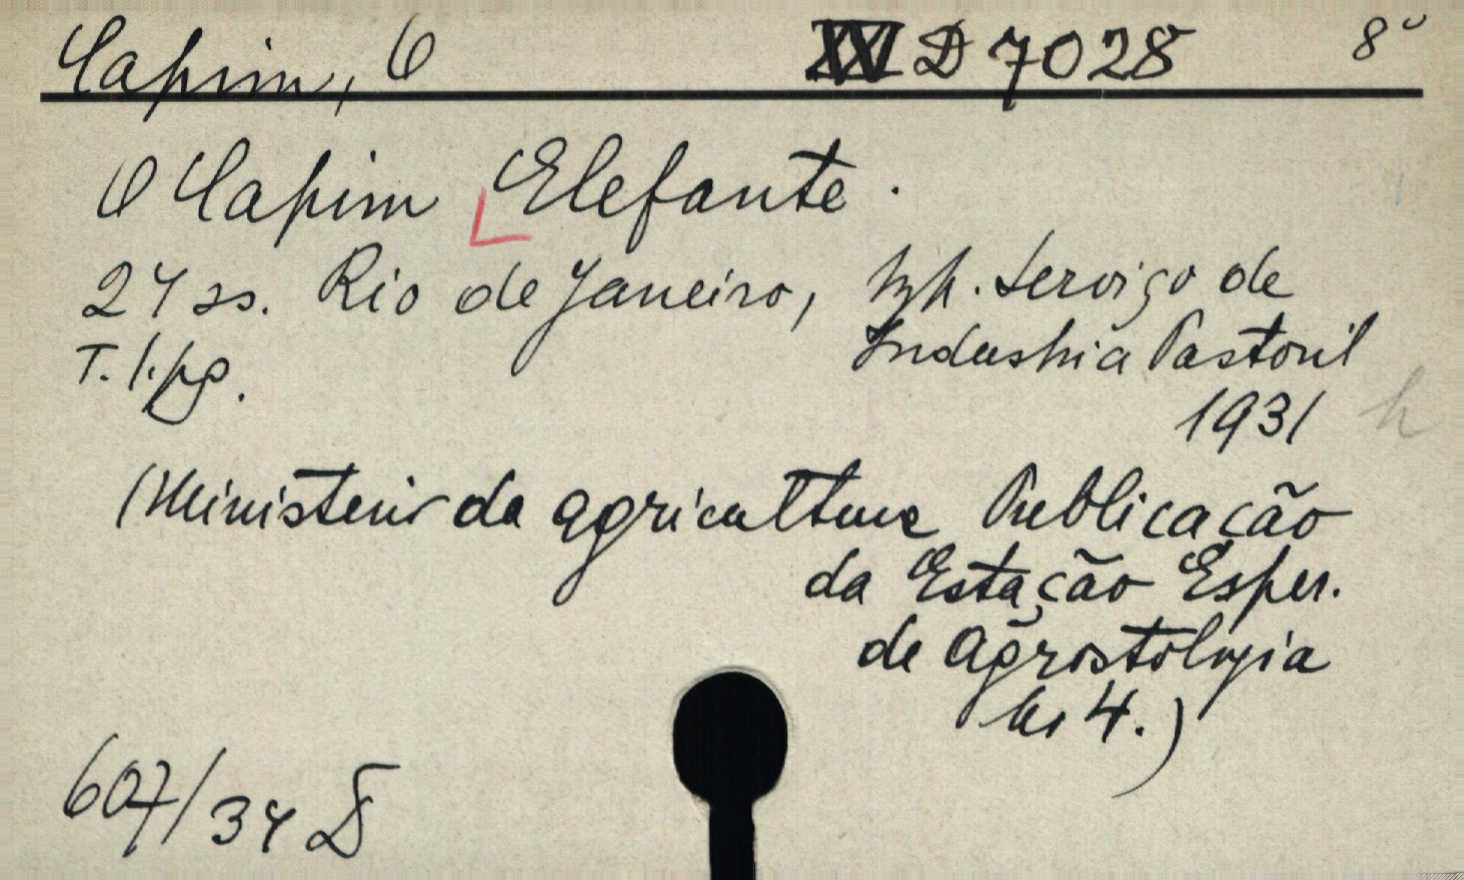 Capim, O XVI D 7028 8°
O Capim Elefante.
24 ss. Rio de Janeiro, Typ. Serviço de
T. l. pg. Industria Pastoril
1931 h
(Ministerio da Agricultura Publicação
da Estação Esper.
de Agrostologia
No 4.)
607/34 D